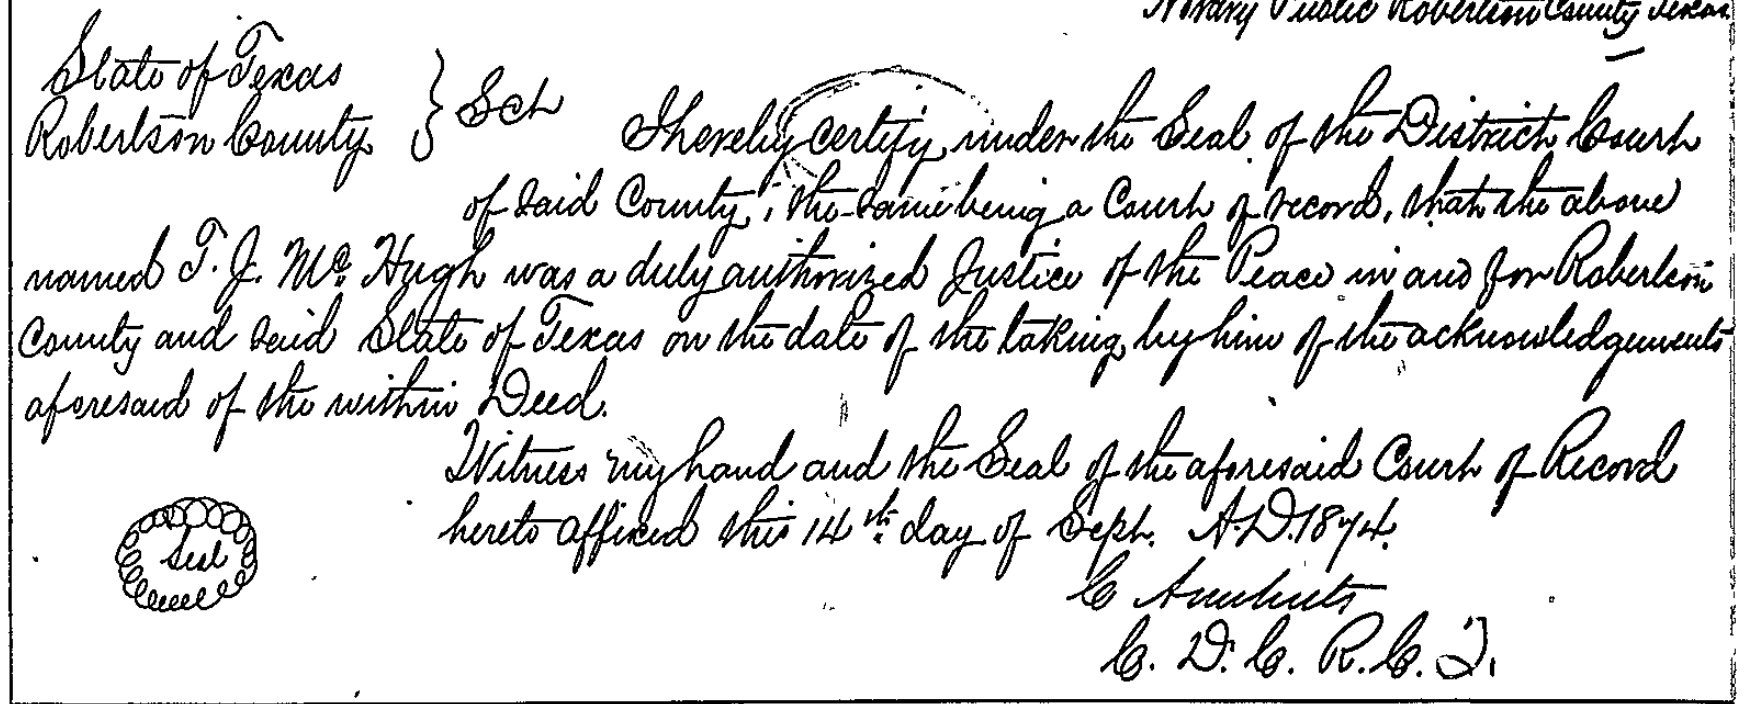 Notary Public Robertson County Texas
State of Texas
Robertson County } Sct
I hereby certify, under the Seal of the District Court
of said County, the same being a Court of record, that the above
named T. J. Mc Hugh was a duly authorized Justice of the Peace in and for Robertson
County and said State of Texas on the date of the taking by him of the acknowledgements
aforesaid of the within Deed.
Witness my hand and the Seal of the aforesaid Court of Record
hereto affixed this 14th day of Sept. A.D. 1874.
Seal
C
C. D. C. R. C. T.